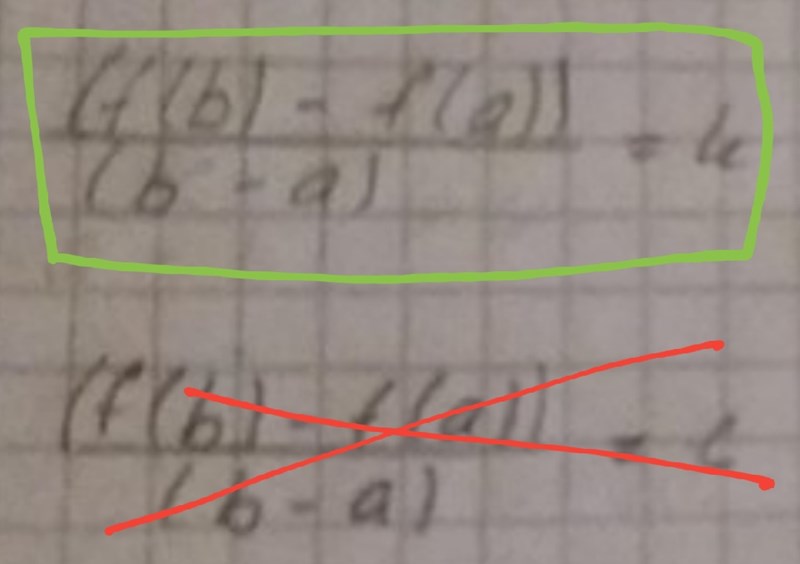 (f(b) - f(a))
(b - a) = k
(f(b) - f(a))
(b - a) =